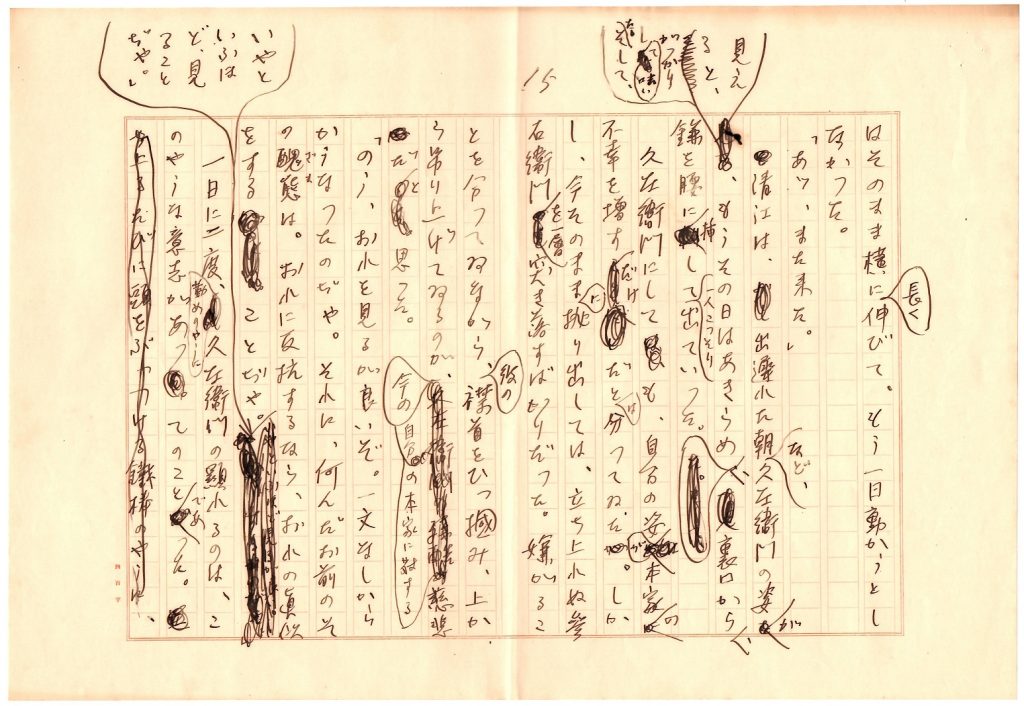 15
はそのまま横に長く伸びて。もう一日動かうとし
なかつた。
「あツ、また来た。」
清江は、出遅れた朝など、久左衛門の姿が
見えると、がつかりして、
もうその日はあきらめ、裏口から
鎌を腰に挿して一人こつそり出ていつた。
久左衛門にしても、自分の姿が本家の
不幸を増すだけだとは分つてゐた。しか
し、今そのままに抛り出しては、立ち上れぬ参
右衛門を一層突き落すばかりだつた。嫌がるこ
とを分つてゐながら、彼の襟首をひつ掴み、上か
ら吊り上げてゐるのが、今の自分の本家に対する慈悲
だと思つた。
「のう、おれを見るが良いぞ。一文なしから
かうなつたのぢや。それに、何んだお前のそ
の醜態は。おれに反抗するなら、おれの真似
をすることぢや。
いやといふほど、見ることぢや。」
一日に二度、勤めのやうに久左衛門の顕れるのは、こ
のやうな意志があつてのことであつた。